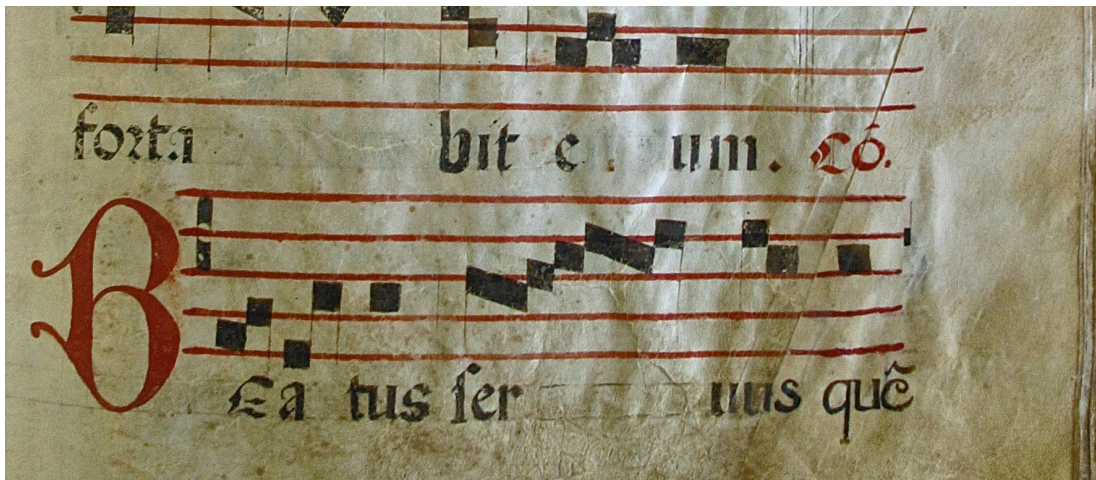 forta bit e um. Cō.
BEa tus ser uus quē